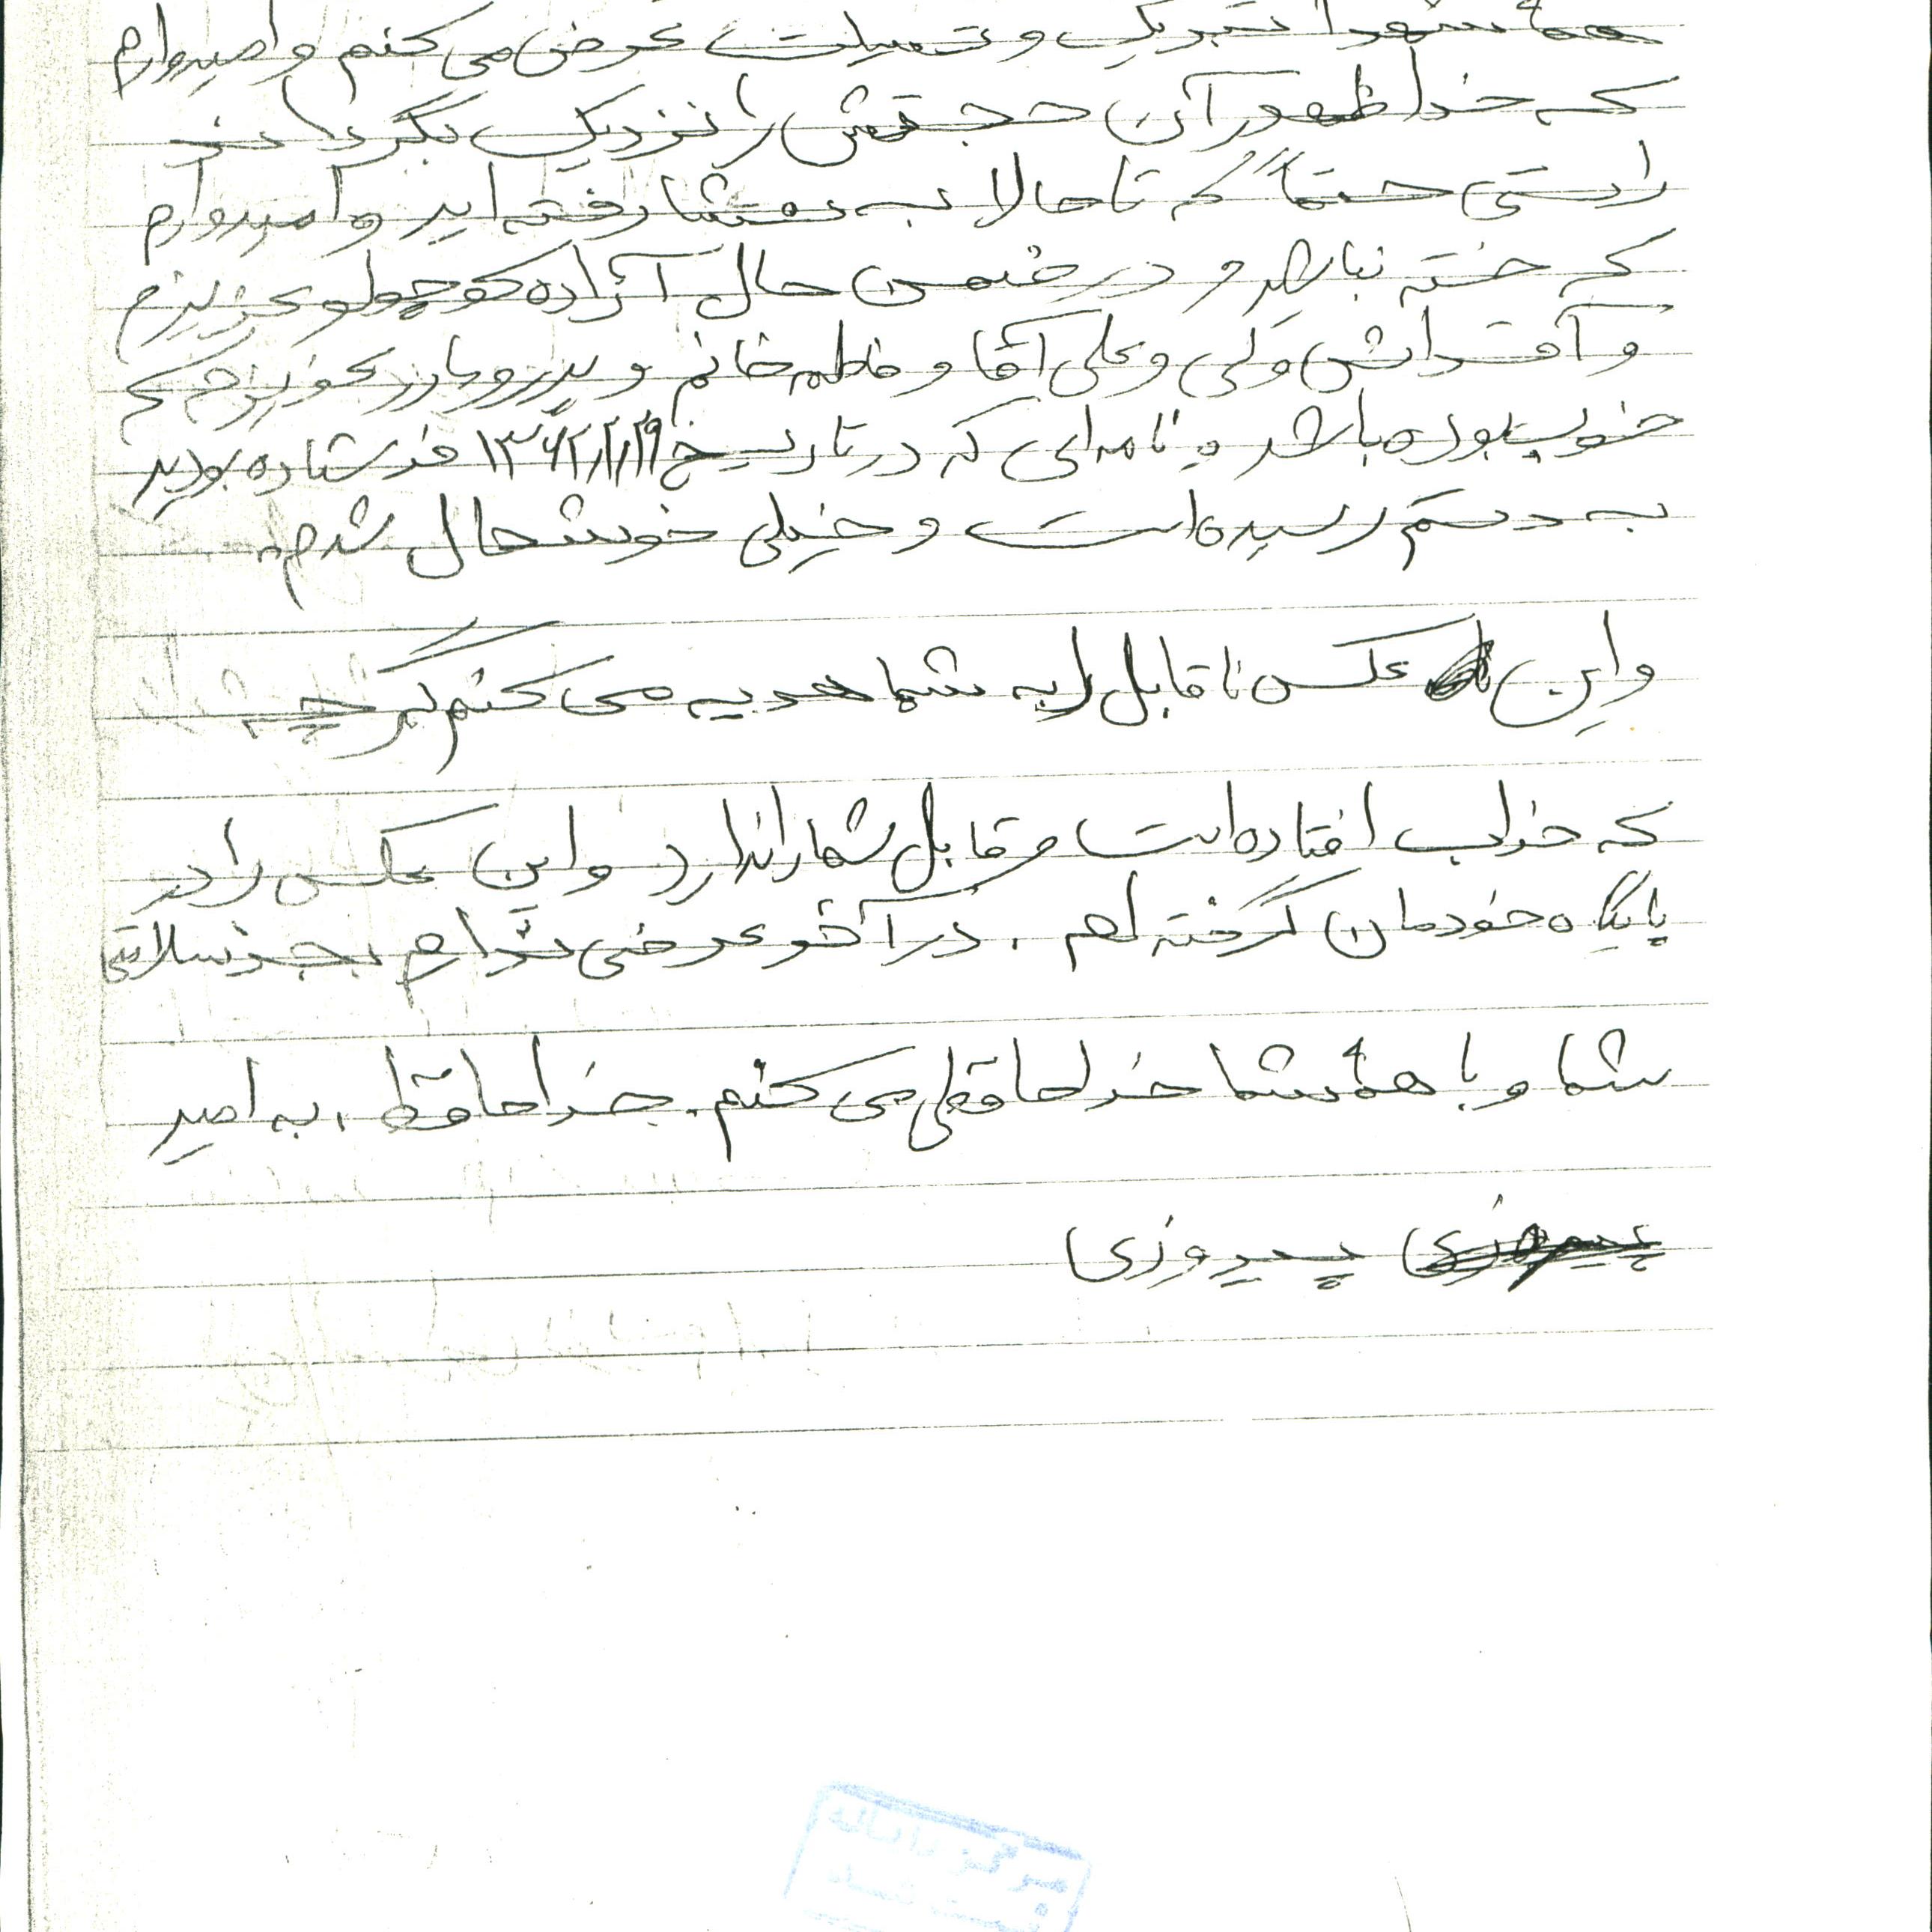 همهٔ شهدا تبریک و تسلیت عرض می کنم و امیدوارم
که خدا ظهور آن حجتش را نزدیک بگرداند
راستی حتماً که تا حالا به رفته اید و امیدوارم
که خسته نباشد و در ضمن حال آزاده کوچولو عزیزم
و ولی و علی آقا و فاطمه خانم و پدر و مادر عزیزم که
خوب بوده باشد و نامه ای که در تاریخ فرستاده بودید
به دستم رسیده است و خیلی خوشحال شدم.
و این عکس ناقابل را به شما هدیه می کنم اگر چه
که خراب افتاده است و قابل شما را ندارد و این عکس را در
پایگاه خودمان گرفته ام. در آخر عرضی ندارم بجز سلامتی
شما و با همهٔ شما خداحافظی می کنم. خداحافظ، به امید
پیروزی
مرکز رایانه
ثبت شد